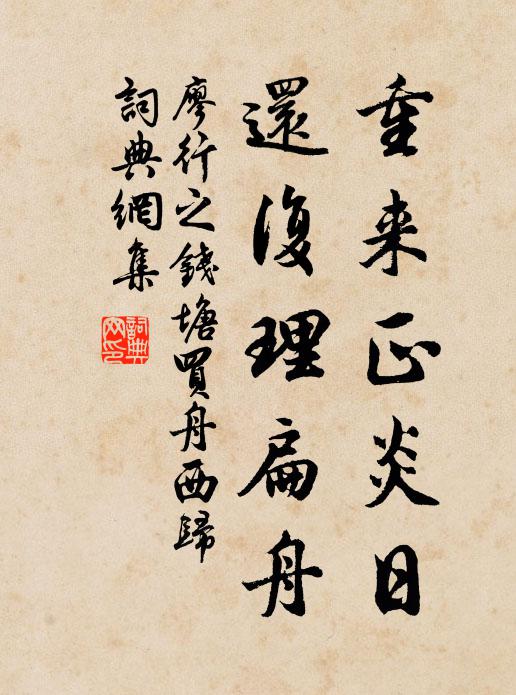 重来正炎日
還復理扁舟
廖行之錢塘買舟西歸
詞典網集
詞典
网印